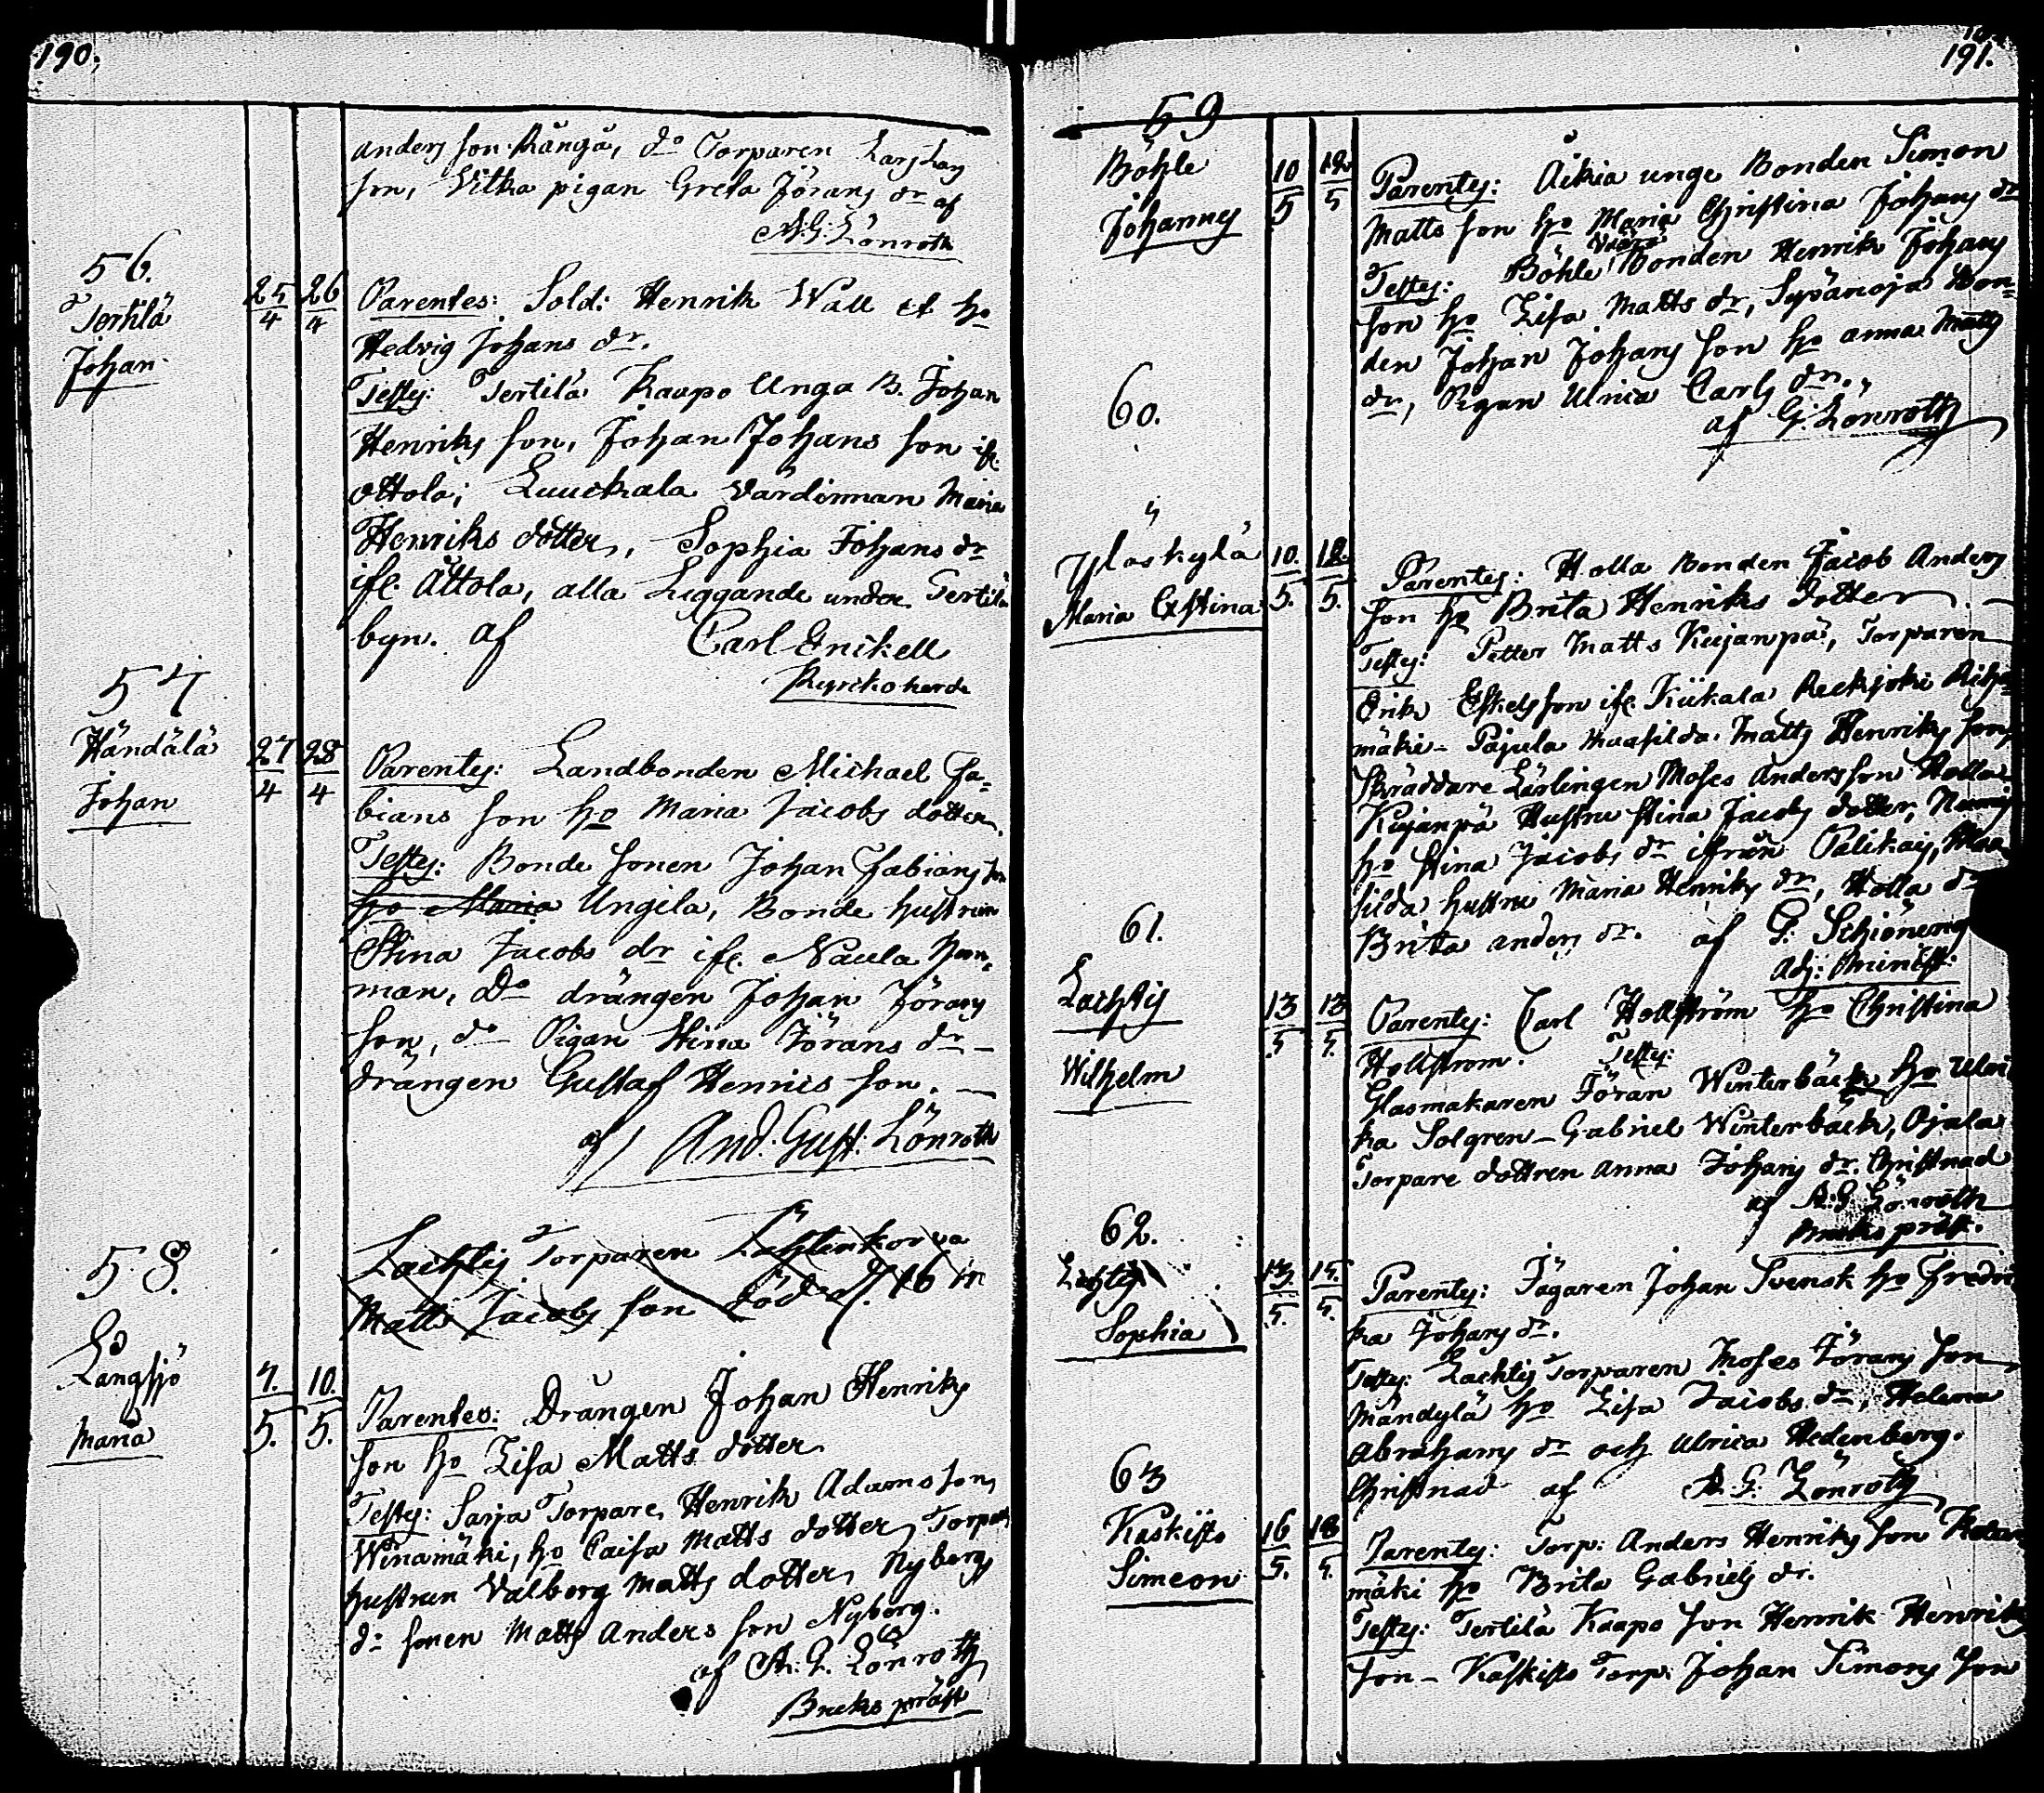 190.
Anders son Rångå, do Torparen Lars Lars
son, Vitka pigan Greta Jörans dr af
A. G. Lönroth
56.
Tertilä
Johan
25/4 26/4
Parentes: Sold: Henrik Wall et ho
Hedvig Johans dr.
Testes: Tertilä Kaapo Unga B. Johan
Henriks son, Johan Johans son ifr.
Ottola; Luuckala Värdinnan Maria
Henriks dotter, Sophia Johans dr
ifr. Åttola, alla Liggande under Tertilä
byn. af Carl Enikell
Kyrckoherde
57
Händälä
Johan
27/4 28/4
Parentes: Landbonden Michael Fa-
bians son ho Maria Jacobs dotter.
Testes: Bonde sonen Johan Fabians son
ho Maria Ungila, Bonde hustrun
Stina Jacobs dr ifr. Naula
man, do drängen Johan Jörans
son, do Pigan Stina Jörans dr
drängen Gustaf Henrics son.
af And: Gust: Lönroth
Lachtis Torparen
Matts Jacobs son död d. 16
58.
Långsjö
Maria
7./5. 10./5.
Parentes: Drängen Johan Henriks
son ho Lisa Matts dotter
Testes: Sarja Torpare Henrik Adams son,
Winamäki, ho Caisa Matts dotter, Torpare
hustrun Valborg Matts dotter, Nybergs
do sonen Matts Anders son Nyberg.
af A. G. Lönroth
Bruks präst
191.
59
Böhle
Johannes
10/5 12/5
Parentes: Äikiä unge Bonden Simon
Matts son ho Maria Christina Johans dr
Testes: Böhle Bonden Henrik Johans
son ho Lisa Matts dr, Sypäroja Bon-
den Johan Johans son ho Anna Matts
dr, Pigan Ulrica Carls dr.
af G. Lönroth
60.
Yläskylä
Maria Christina
10./5. 12./5.
Parentes: Holla Bonden Jacob Anders
son ho Brita Henriks dotter.
Testes: Petter Matts Kujanpä, Torparen
Erik Eskels son ifr. Kiikala Reckjoki Rihi-
mäki - Pajula Muasilda Matts Henriks son,
Skräddare Lärlingen Moses Anders son Holla
Kujanpä Hustru Stina Jacobs dotter,
ho Stina Jacobs dr ifrån Palikais, Mua
silda hustru Maria Henriks dr, Holla dr
Brita Anders dr. af G: Schiöneng
Adj: Minist:
61.
Lachtis
Wilhelm
13/5 13/5.
Parentes: Carl Hollström ho Christina
Hollström. Testes:
Glasmakaren Jöran Winterbäck ho Ulri
ka Solgren - Gabriel Winterbäck, Ojala
Torpare dottren Anna Johans dr. Christnad
af A: G: Lönroth
Bruks präst.
62.
Lachtis
Sophia
13./5. 15./5.
Parentes: Jägaren Johan Svensk ho Fredri
ka Johans dr.
Testes: Lachtis Torparen Moses Jörans son
Mändylä ho Lisa Jacobs dr, Helena
Abrahams dr och Ulrica Hedenberg.
Christnad af A. G: Lönroth
63
Kaskisto
Simeon
16/5. 18/5.
Parentes: Torp: Anders Henriks son
mäki ho Brita Gabriels dr.
Testes: Tertilä Kaapo son Henrik Henriks
son - Kaskisto Torp: Johan Simons son